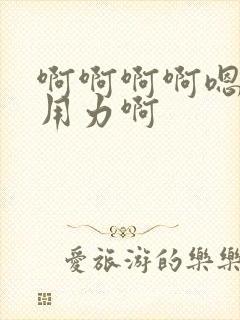 啊啊啊啊嗯
用力啊
愛旅游的樂樂